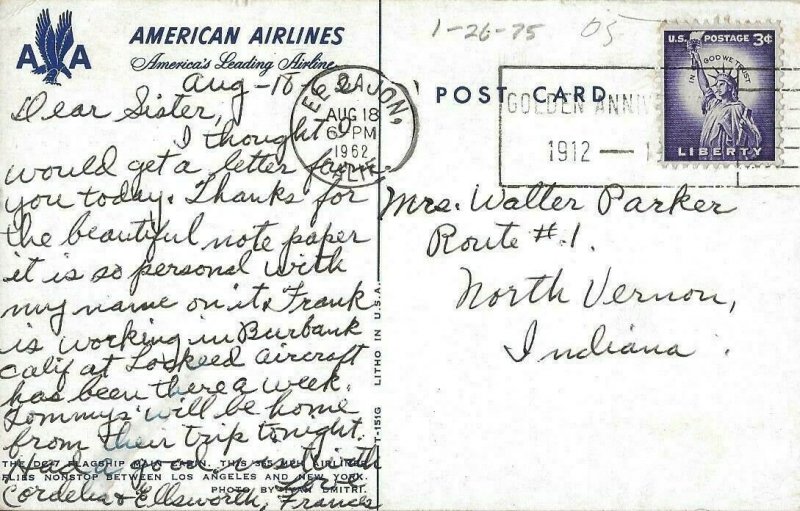 AMERICAN AIRLINES
America's Leading Airline
A A
1-26-75
05
U.S. POSTAGE 3¢
IN GOD WE TRUST
LIBERTY
POST CARD
EL CAJON,
AUG 18
6 PM
1962
CALIF.
GOLDEN ANNIV
1912 — 1
Aug-18-62
Dear Sister,
I thought I
would get a letter from
you today. Thanks for
the beautiful note paper
it is so personal with
my name on it. Frank
is working in Burbank
Calif at Lockeed aircraft
has been there a week.
Tommys will be home
from their trip tonight.
Had a good visit with
Cordelia & Ellsworth, Love Frances
Mrs. Walter Parker
Route #1.
North Vernon,
Indiana.
THE DC-7 FLAGSHIP MAIN CABIN. THIS 365 MPH AIRLINER
FLIES NONSTOP BETWEEN LOS ANGELES AND NEW YORK.
PHOTO BY IVAN DMITRI.
T-151G LITHO IN U.S.A.